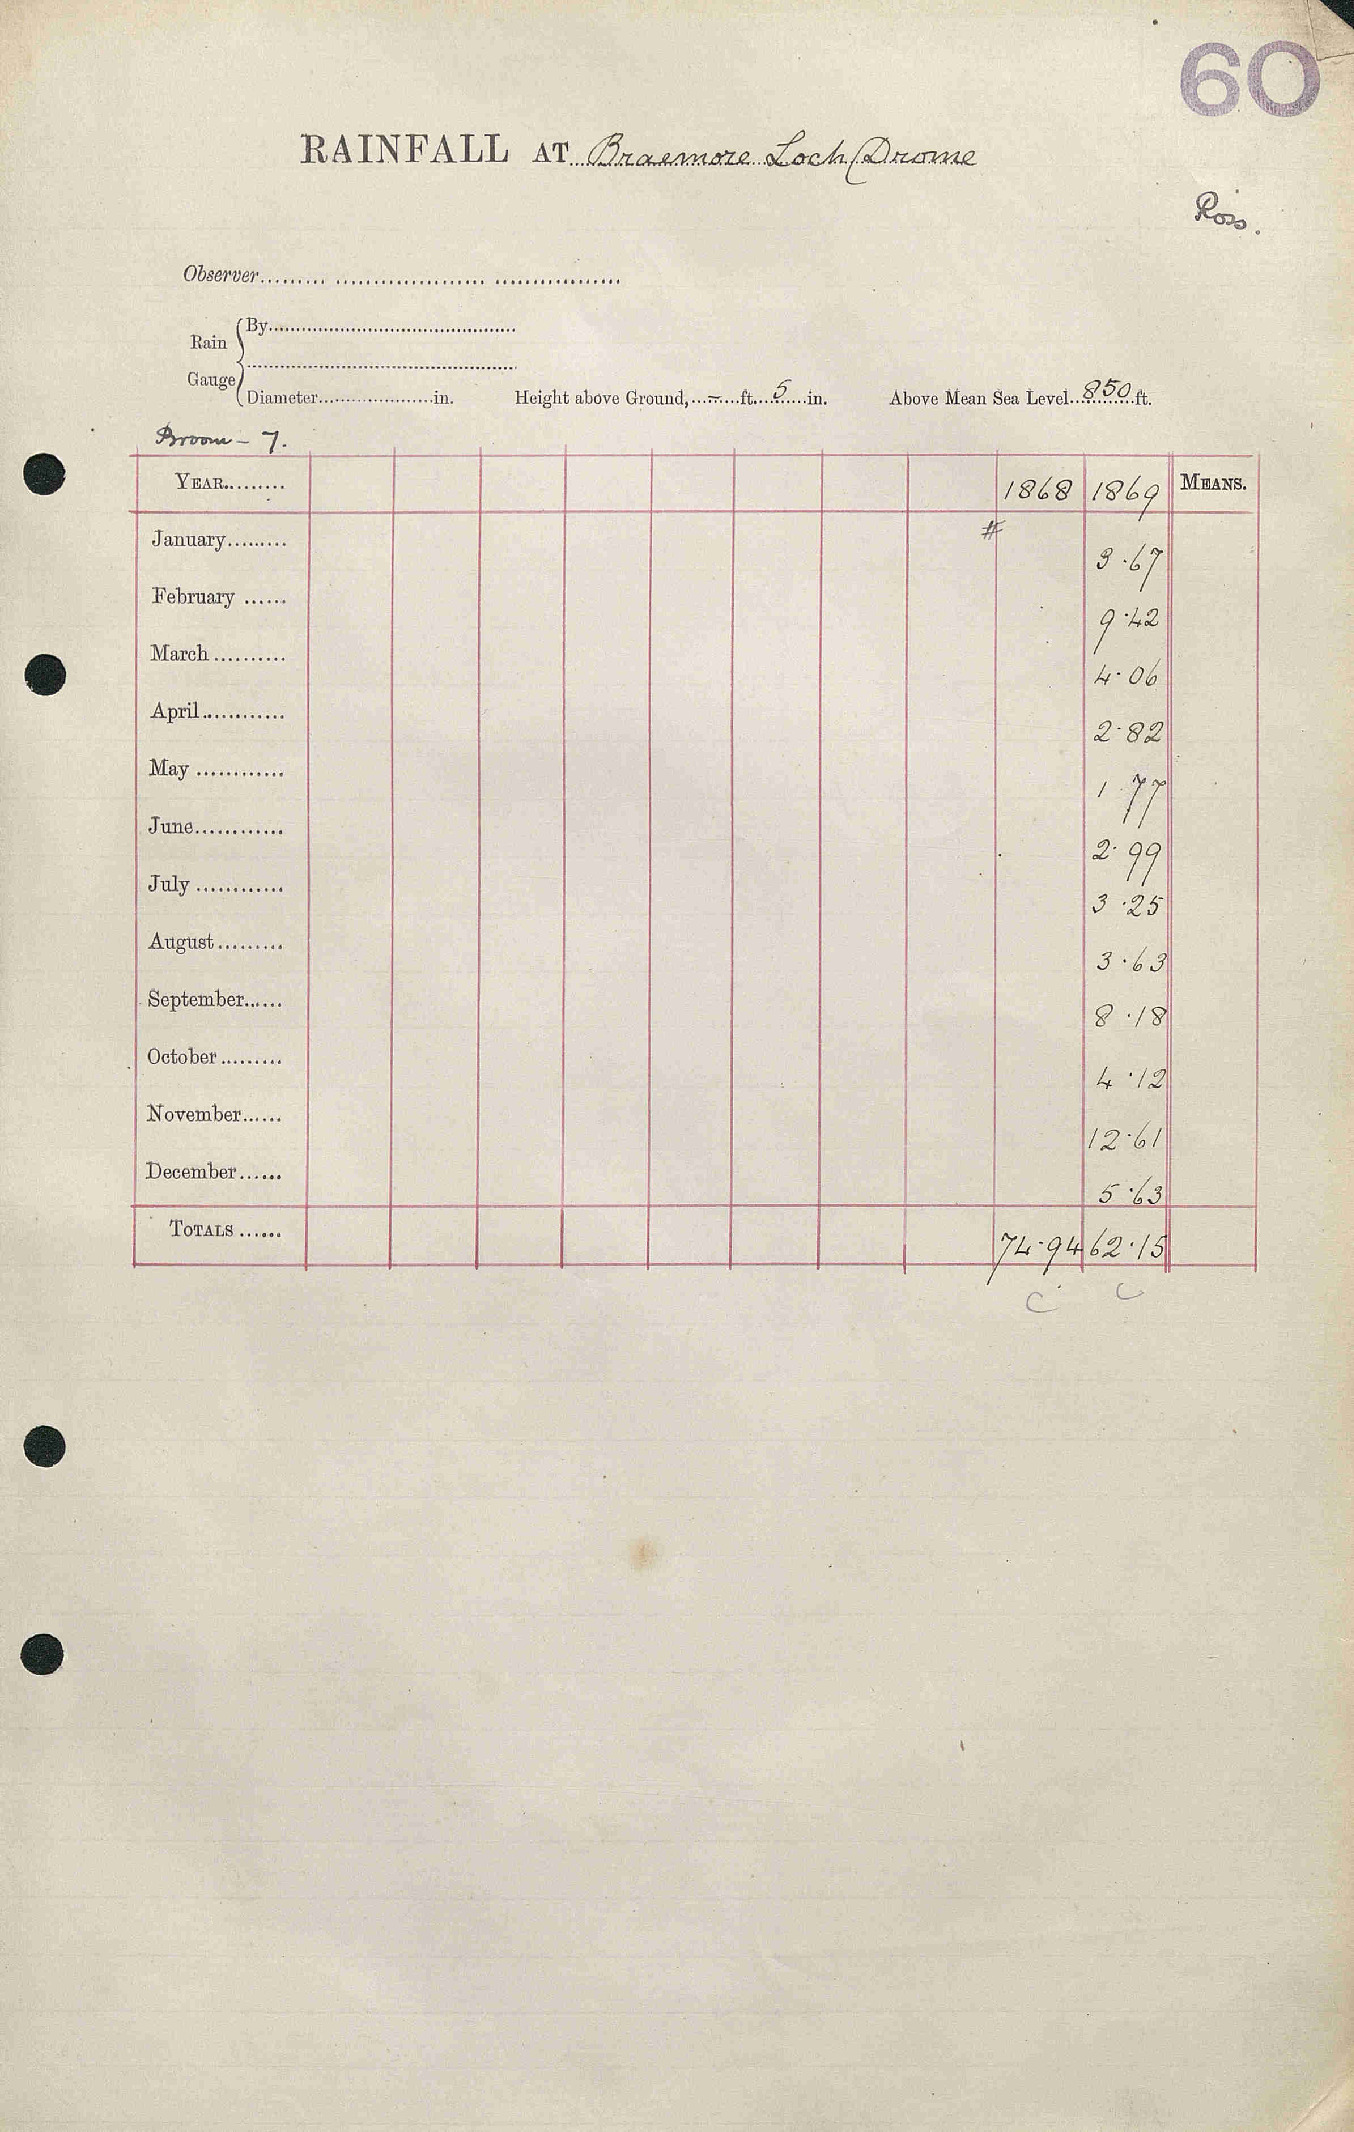 60
RAINFALL AT Braemore Loch Drome
Ross.
Observer
Rain Gauge
By
Diameter in. Height above Ground, – ft. 5 in. Above Mean Sea Level 850 ft.
Broom – 7.
YEAR 1868 1869 MEANS.
#
January 3.67
February 9.42
March 4.06
April 2.82
May 1.77
June 2.99
July 3.25
August 3.63
September 8.18
October 4.12
November 12.61
December 5.63
TOTALS 74.94 62.15
C C